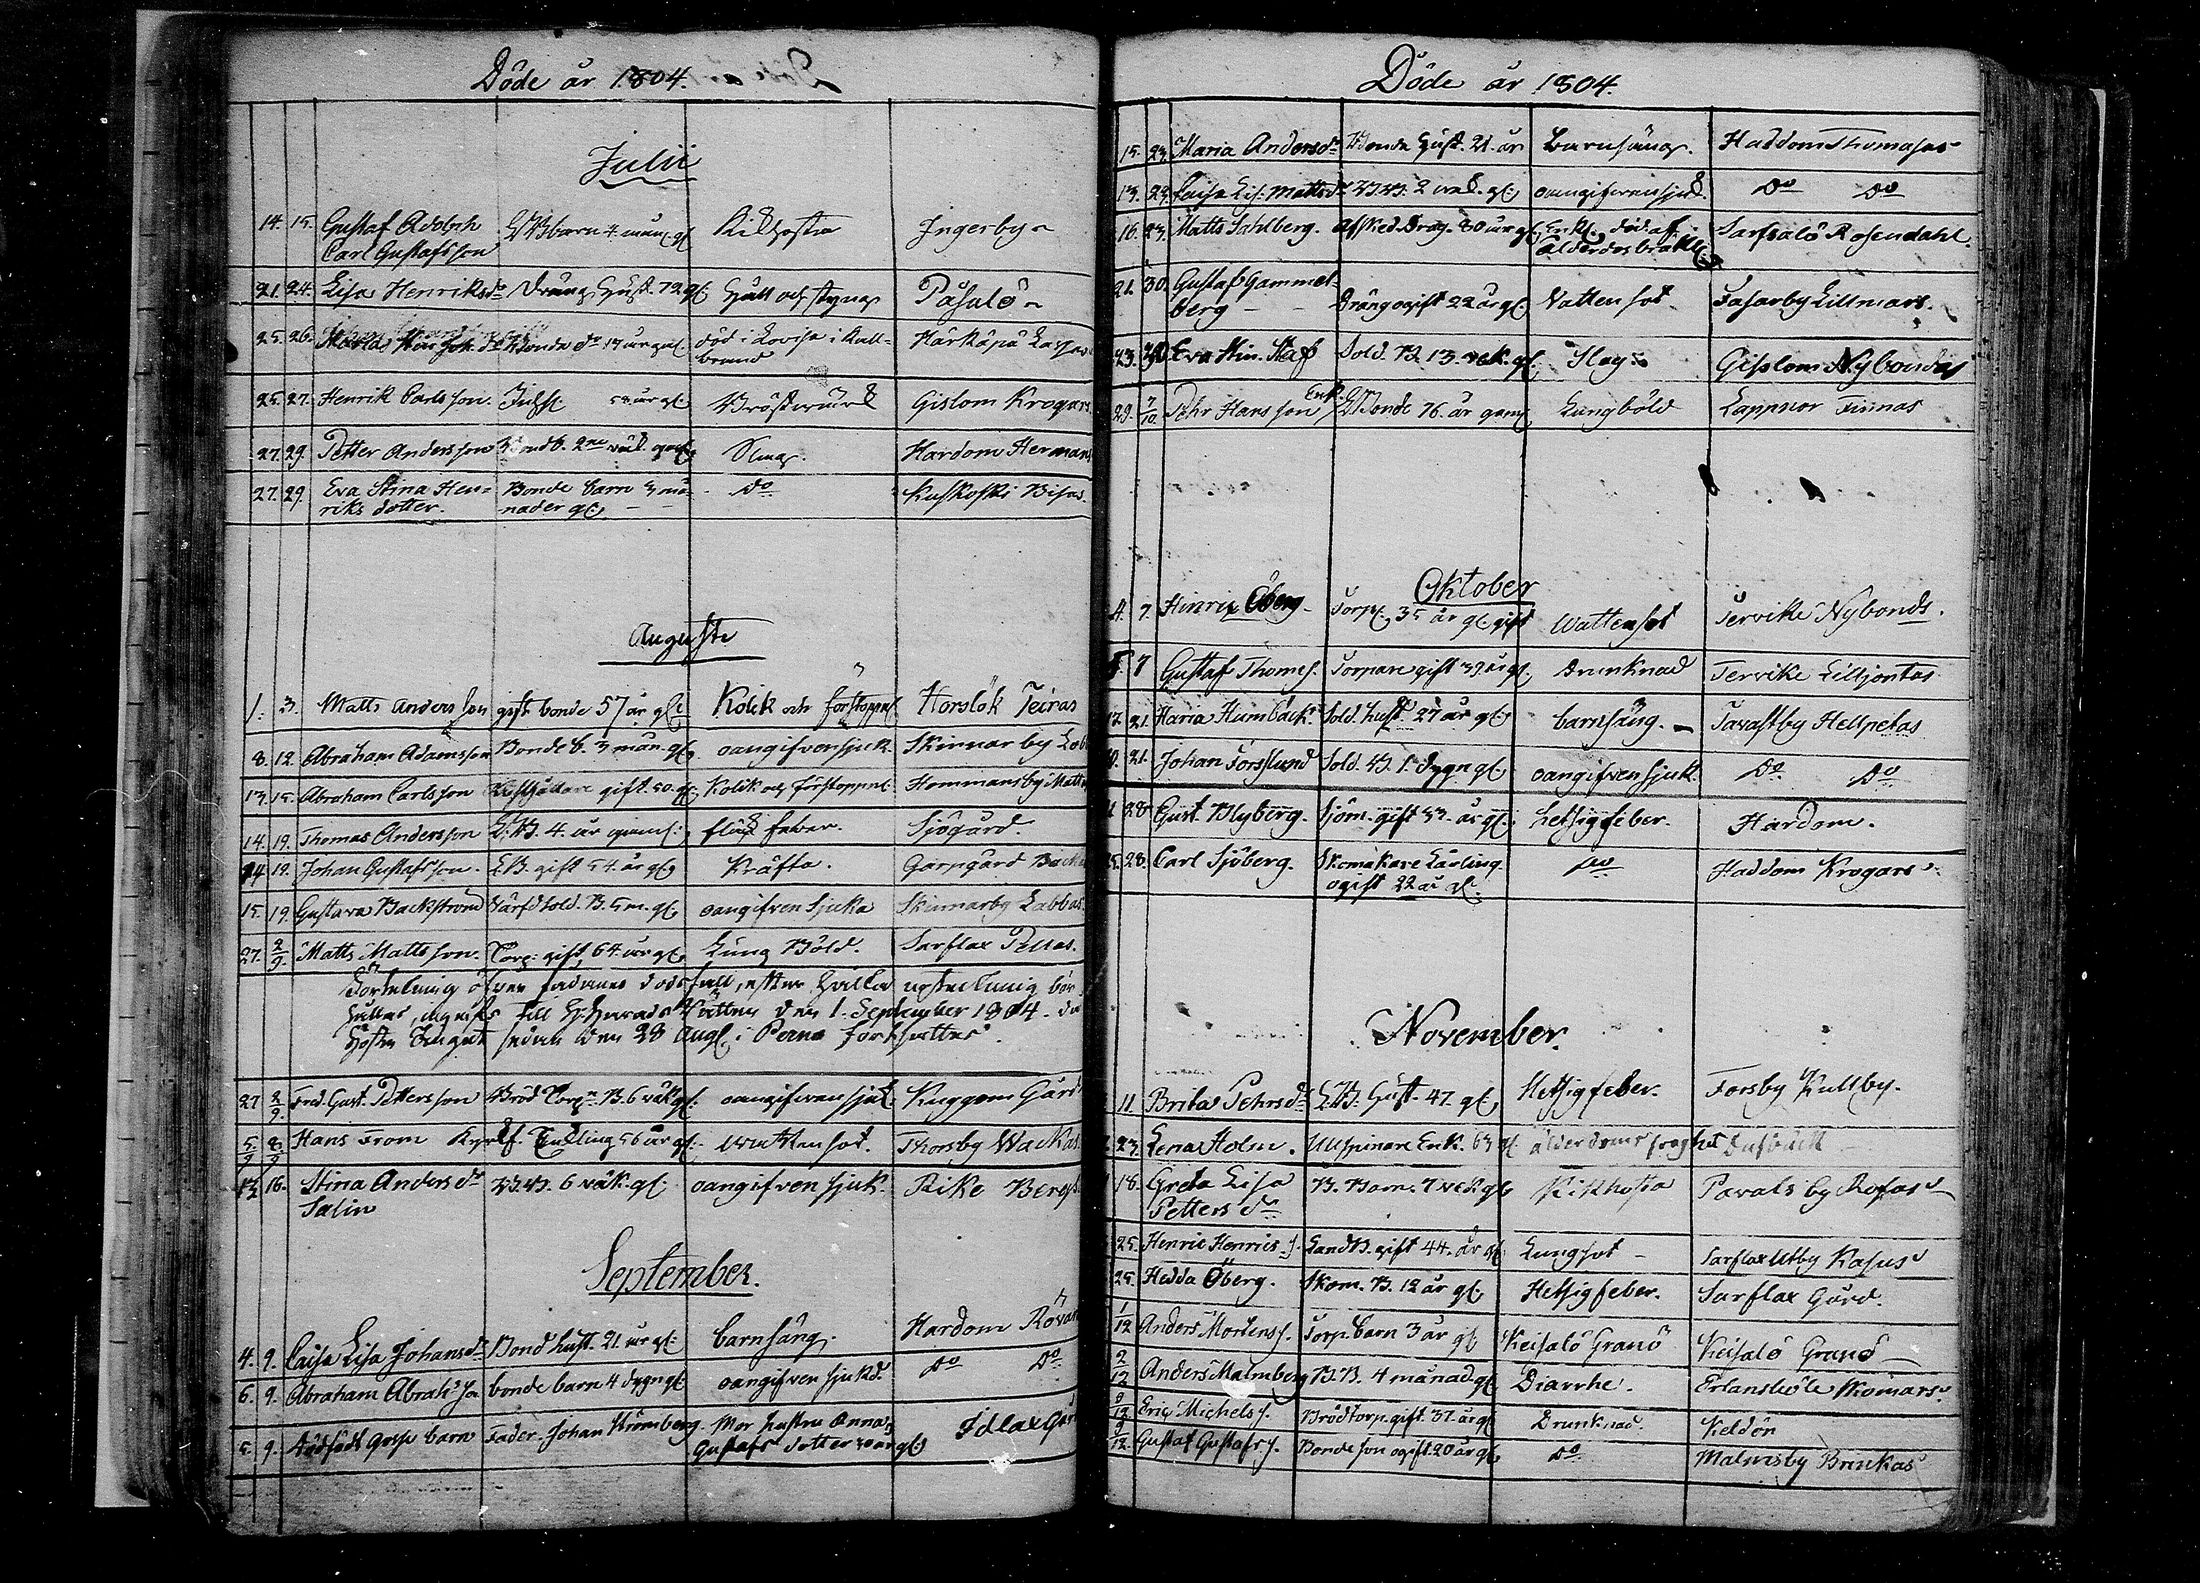 Döde år 1804.
Julii
14. 15. Gustaf Adolph
Carl Gustafsson
barn 4 mån gl Kikhosta Ingerby
21. 24. Lisa Henriksdr Dräng Hust. 72 gl: Håll och styng Påsalö
25. 26. Bonde dr 14 år gl död i Lovisa i Kall-
brand
Härkäpä Lasses
25. 27. Henrik Carlsson. Inhs: år gl Bröstvärk Gislom Krogars
27. 29. Petter Andersson Bondb. 2ne vek. gl Slag. Hardom Hermans
27. 29. Eva Stina Hen-
riks dotter.
Bonde barn 3 må-
nader gl
Do Kuskoski Bisas.
Augusti
1. 3. Matts Andersson gift bonde 57 år gl: Kolik och förstoppel Horslök Teiras
8. 12. Abraham Adamsson Bonde b. 3 mån. gl oangifven sjuk. Skinnarby
13. 15. Abraham Carlsson gift. 50. gl. Kolik och förstoppel: Hommansby Matts
14. 19. Thomas Andersson L: B. 4. år fläck feber. Sjögård.
14 19. Johan Gustafsson. L.B. gift 54. år gl Kräfta. Garpgård
15. 19. Gustava Backström Värfd Sold. B. 5 m. gl oangifven Sjuka Skinnarby Labbas.
27. 2/9. Matts Mattsson. Torp: gift, 64. år gl Lung Böld. Sarflax Pellas.
Förtekning öfver dödsfall, efter hvilka upteckning bör
hållas, ingafs till H: Härads Rätten den 1. September 1804. då
Hösta Tinget sedan den 28 Aug. i Perna fortsattes.
27 2/9 Fred. Gust. Pettersson Bröd Torp: B. 6 väk gl. oangifven sjuk Kuggom Gård
5/9 8/9 Hans From 56 år gl. Wattensot. Thorsby Wackas
16. Stina Andersdr
Salin
B.B. 6 väk. gl: oangifven sjuk. Rike Bergs
September.
4. 9. Caisa Lisa Johansdr Bond hust. 21. år gl: barnsäng. Hardom Rövars
6. 9. Abraham Abrahsson bonde barn 4 dygn gl oangifven sjukd. Do Do
5. 9. dödfödt gosse barn Fader. Johan Strömberg. Mor hustru Anna
Gustafs dotter år gl:
Idlax Gård
Döde år 1804.
15. 23 Maria Andersdr Bonde Hust. 21. år Barnsäng. Haddom Thomasas
13. 23. Caisa Lis: Mattsdr B.B. 2 vek. gl: oangifven sjuk. Do Do
16. 23. Matts Sahlberg. Afsked Drag. 80 år gl, Enkl. död af
ålderdoms bräckl:
Sarfsalö Rosendahl.
21. 30. Gustaf Gammel-
berg
Dräng ogift 22 år gl Vattensot Tasarby Lillmars.
23. 30. Eva Stin. Staf Sold. B. 13. vek. gl. Slag Gislom Nybondas
29. 7/10. Pehr Hansson Enkl: Bonde 76. år gam. Lungböld Lappnor Finnas
Oktober
4. 7. Hinric Öberg Torp. 35 år gl. gift Wattensot Tervike Nybonds.
7 Gustaf Thomes. Torpare gift 39 år gl. Drunknad Tervike Lilljontas
17. 21. Maria Humbäck. Sold. hust. 27 år gl. barnsäng. Tavastby Hellpetas
21. Johan Forsslund Sold. B. 1. dygn gl oangifven sjuk. Do Do
28 Gust. Blyberg. Sjöm. gift 53. år gl. hetsigfeber. Hardom.
25. 28. Carl Sjöberg. Skomakare Lärling.
ogift 22 år gl.
Do Haddom Krogars
November.
11. Brita Pehrsdr L.B. Hust. 47. gl Hetsigfeber. Forsby Kullby.
23. Lena Holm. Ullspinare Enk. 63 gl ålderdoms
18. Greta Lisa
Petters dr
B. Barn. 7 vek gl Kikhosta Pavalsby Rofas
25. Henric Henrics s. LandB. gift 44. år gl Lungsot Sarflax Utby Kasus
25. Hedda Öberg. Skom. B. 12 år gl. Hetsigfeber. Sarflax Gård.
1/12 Anders Mortens s. Torp. barn 3 år gl Keisalö Granö Keisalö Granö
2/12 Anders Malmberg B.B. 4 månad gl Diarrhe. Erlansböle Skomars
9/12 Eric Michels s. Brödtorp. gift. 37. år gl Drunknad. Keldön
9/12. Gustaf Gustafs s. Bonde son ogift. 20 år gl Do. Malmsby Brinkas